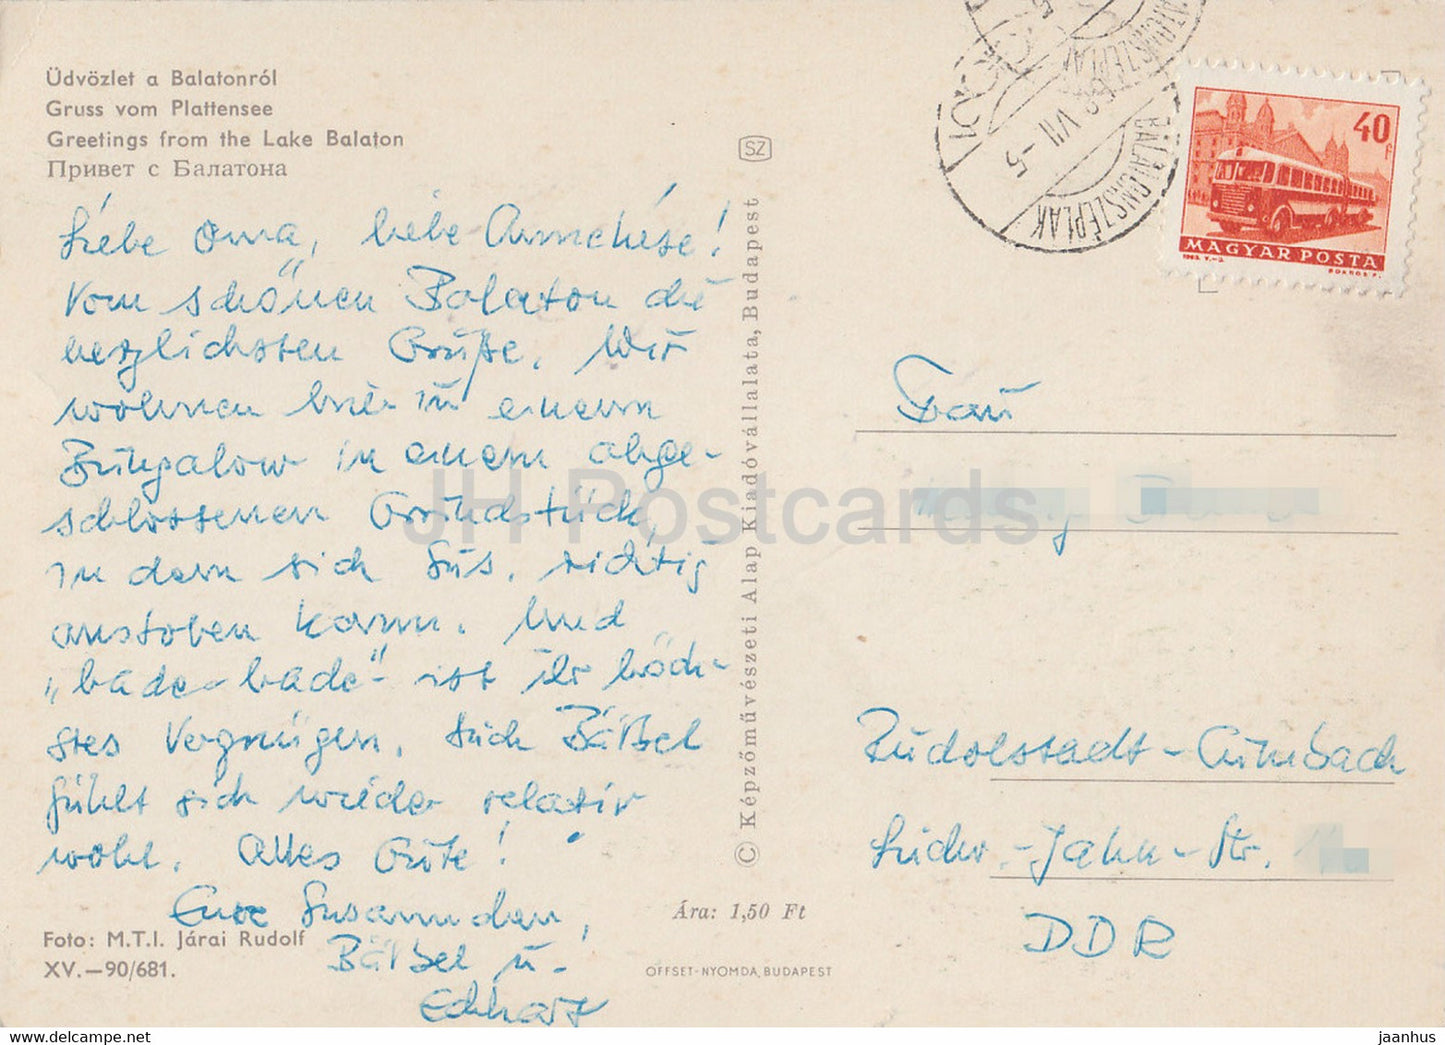 Üdvözlet a Balatonról
Gruss vom Plattensee
Greetings from the Lake Balaton
Привет с Балатона
Liebe Oma, liebe Anneliese!
Vom schönen Balaton die
herzlichsten Grüße. Wir
wohnen hier in einem
Bungalow in einem abge-
schlossenen Grundstück,
in dem sich Sus. richtig
austoben kann. Und
„bade-bade" ist ihr höch-
stes Vergnügen. Auch Bärbel
fühlt sich wieder relativ
wohl. Alles Gute!
Eure Susannchen,
Bärbel u.
Eckhart
Foto: M.T.I. Járai Rudolf
XV.—90/681.
Ára: 1,50 Ft
OFFSET-NYOMDA, BUDAPEST
© Képzőművészeti Alap Kiadóvállalata, Budapest
SZ
BALATONSZÉPLAK
VII -5
40f
MAGYAR POSTA
Frau
Rudolstadt-Cumbach
Ludw.-Jahn-Str.
DDR
JH Postcards
www.delcampe.net
jaanhus